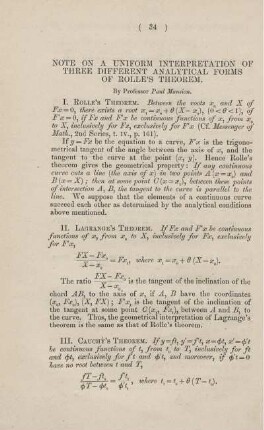 ( 34 )
NOTE ON A UNIFORM INTERPRETATION OF
THREE DIFFERENT ANALYTICAL FORMS
OF ROLLE'S THEOREM.
By Professor Paul Mansion.
I. ROLLE'S THEOREM. Between the roots x₀ and X of
Fx = 0, there exists a root x₁ = x₀ + θ (X − x₀), (0 < θ < 1), of
F'x = 0, if Fx and F'x be continuous functions of x, from x₀
to X, inclusively for Fx, exclusively for F'x (Cf. Messenger of
Math., 2nd Series, t. IV., p. 161).
If y = Fx be the equation to a curve, F'x is the trigono-
metrical tangent of the angle between the axis of x, and the
tangent to the curve at the point (x, y). Hence Rolle's
theorem gives the geometrical property: If any continuous
curve cuts a line (the axis of x) in two points A (x = x₀) and
B (x = X); then at some point C (x = x₁), between these points
of intersection A, B, the tangent to the curve is parallel to the
line. We suppose that the elements of a continuous curve
succeed each other as determined by the analytical conditions
above mentioned.
II. LAGRANGE'S THEOREM. If Fx and F'x be continuous
functions of x, from x₀ to X, inclusively for Fx, exclusively
for F'x,
(FX − Fx₀)/(X − x₀) = F'x₁, where x₁ = x₀ + θ (X − x₀).
The ratio (FX − Fx₀)/(X − x₀) is the tangent of the inclination of the
chord AB, to the axis of x, if A, B have the coordinates
(x₀, Fx₀), (X, FX); F'x₁ is the tangent of the inclination of
the tangent at some point C (x₁, Fx₁), between A and B, to
the curve. Thus, the geometrical interpretation of Lagrange's
theorem is the same as that of Rolle's theorem.
III. CAUCHY'S THEOREM. If y = ft, y' = f't, x = ϕt, x' = ϕ't
be continuous functions of t, from t₀ to T, inclusively for ft
and ϕt, exclusively for f't and ϕ't, and moreover, if ϕ't = 0
have no root between t and T,
(fT − ft₀)/(ϕT − ϕt₀) = f't₁/ϕ't₁, where t₁ = t₀ + θ (T − t₀).